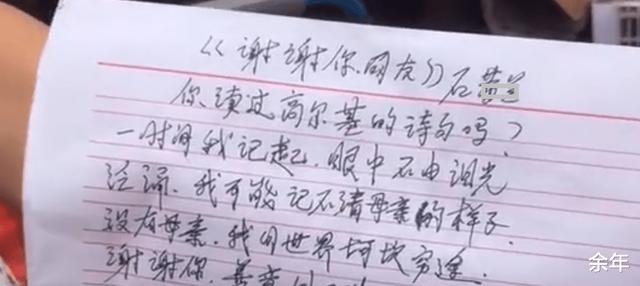 《谢谢你.网友》石
你读过高尔基的诗句吗?
一时间我记起.眼中不由泪光
我可能记不清母亲的样子.
没有母亲.我的世界坷坎穷途.
谢谢你.善
余年